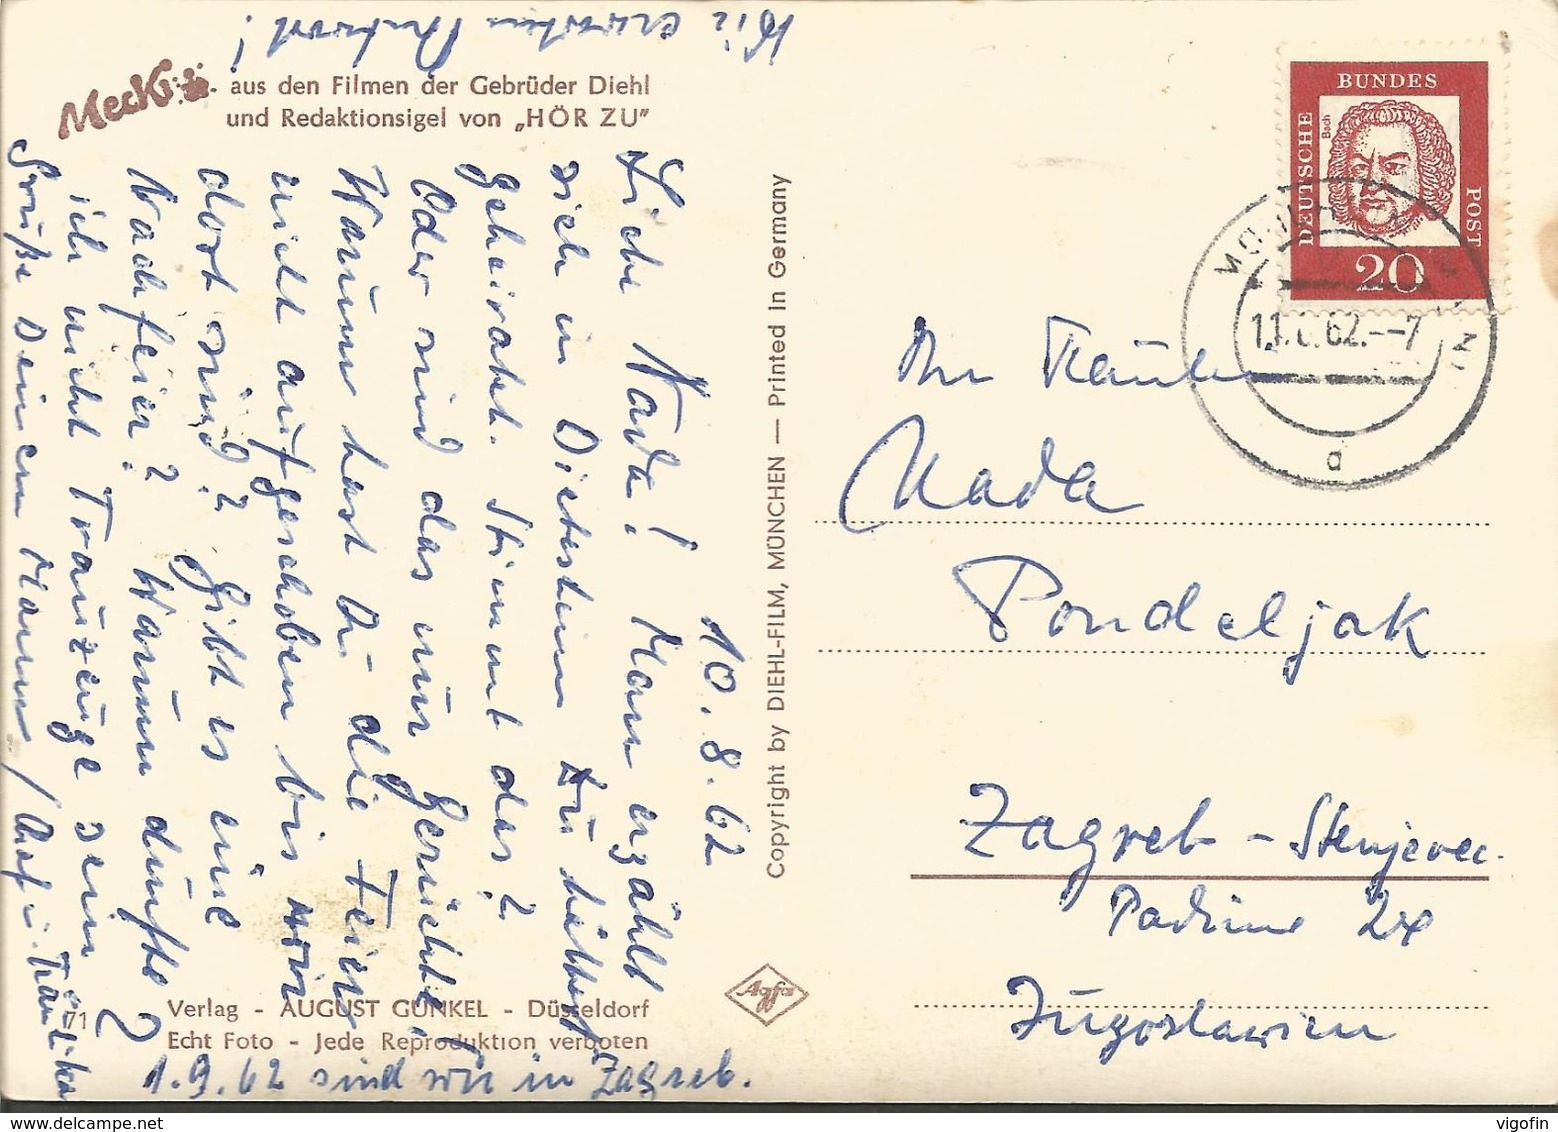 Wir erwarten Antwort!
Mecki
aus den Filmen der Gebrüder Diehl
und Redaktionsigel von „HÖR ZU"
10.8.62
Liebe Nada! Man erzählt
sich in Dietesheim Du hättest
geheiratet. Stimmt das?
Oder sind das nur Gerüchte?
Warum hast Du die Feier
nicht aufgeschoben bis wir
dort sind? Gibt es eine
Nachfeier? Warum durfte
ich nicht Trauzeuge sein?
Grüße Deinen Mann
1.9.62 sind wir in Zagreb.
Verlag - AUGUST GUNKEL - Düsseldorf
Echt Foto - Jede Reproduktion verboten
71
Copyright by DIEHL-FILM, MÜNCHEN — Printed in Germany
Agfa
DEUTSCHE
BUNDES
POST
Bach
20
62.--7
a
Nada
Pondeljak
Zagreb - Stenjevec
Jugoslawien
vigofin